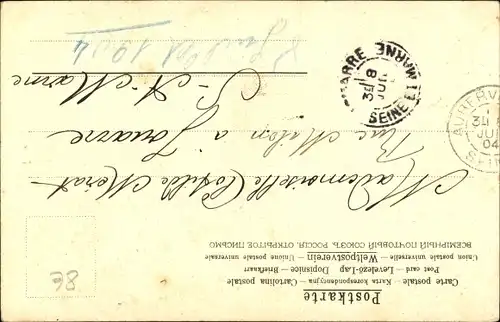 Postkarte
Carte postale — Karta korespondencyjna — Cartolina postale
Post card — Levelező-Lap — Dopisnice — Briefkaart
Union postale universelle — Weltpostverein — Unione postale universale
ВСЕМІРНЫЙ ПОЧТОВЫЙ СОЮЗЪ. РОССІЯ. ОТКРЫТОЕ ПИСЬМО
Mademoiselle Clotilde Morat
Rue à Jouarre
S-et-Marne
Juillet 1904
JOUARRE
8
JUIL
SEINE ET MARNE
AUBERV
JUIL
04
SEINE
38